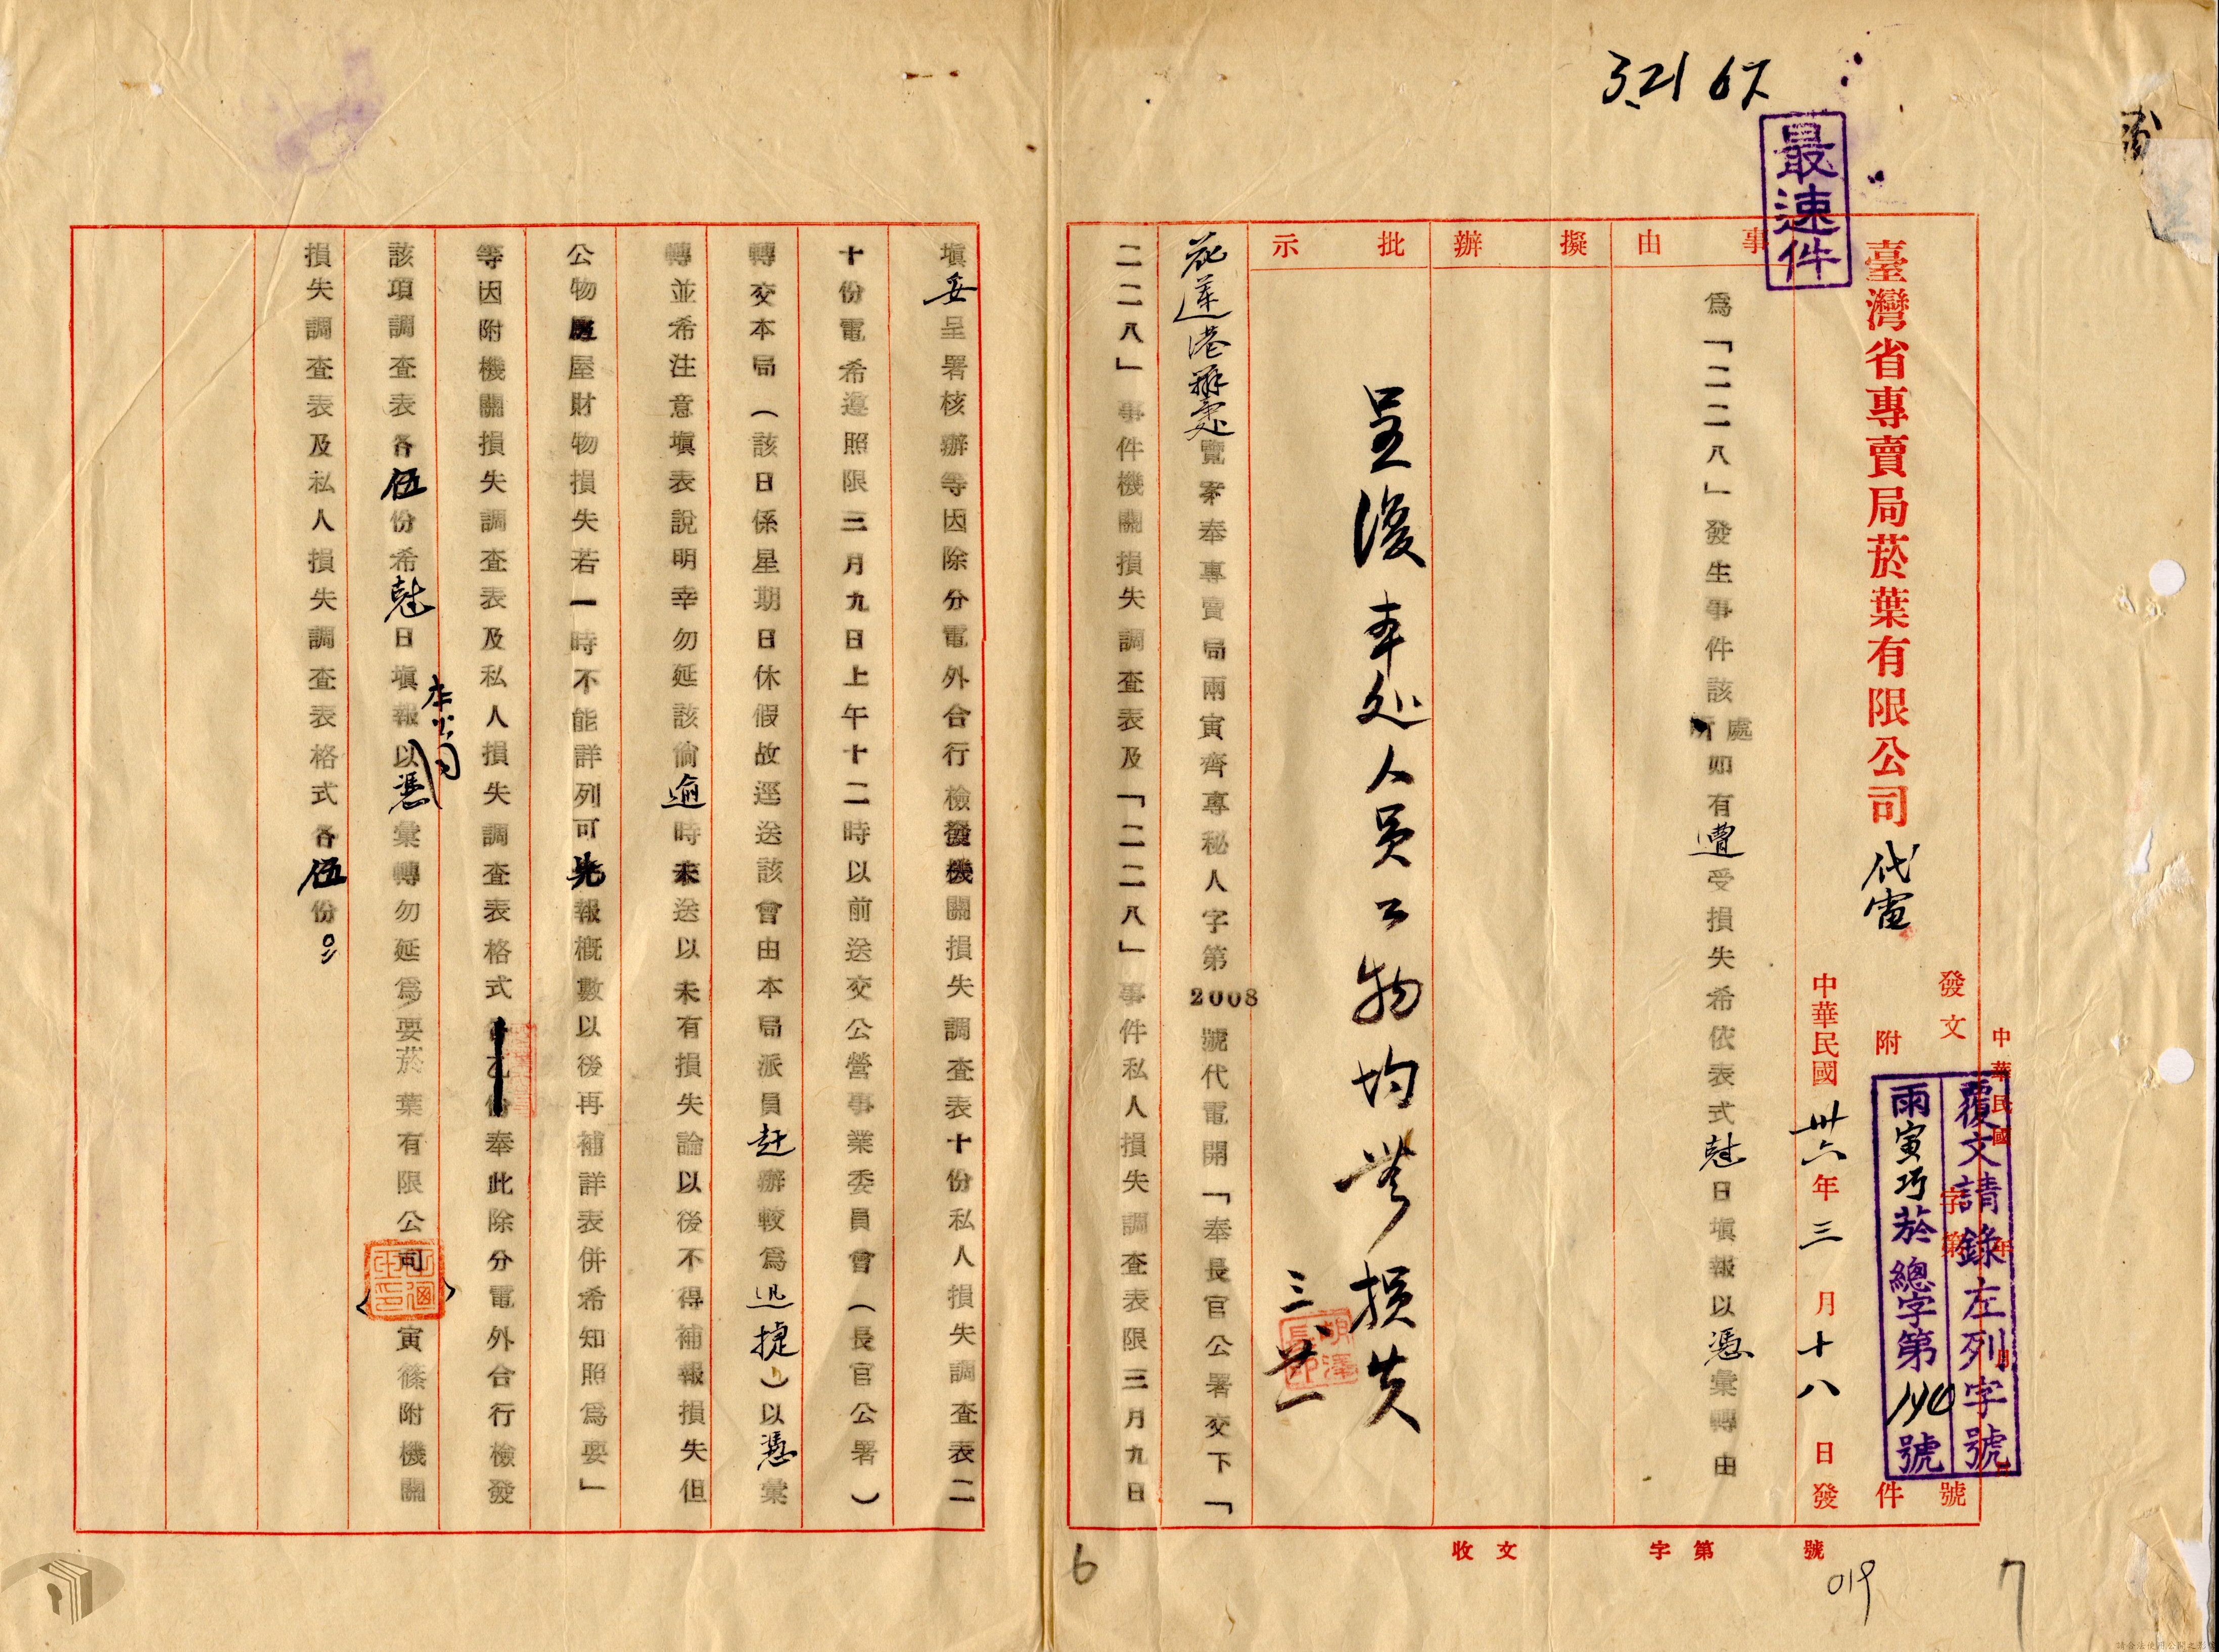 3.21 67
最速件
臺灣省專賣局菸葉有限公司代電
發文 字第 號
附 件
覆文請錄左列字號
雨寅巧菸總字第190號
中華民國 年 月 日
中華民國卅六年三月十八日發
事由
擬辦
批示
為「二二八」發生事件該處所如有遭受損失希依表式尅日填報以憑彙轉由
呈復本處人員公物均無損失
三、廿一
花蓮港辦事處覽案奉專賣局雨寅齊專秘人字第2008號代電開「奉長官公署交下「
二二八」事件機關損失調查表及「二二八」事件私人損失調查表限三月九日
填妥呈署核辦等因除分電外合行檢發機關損失調查表十份私人損失調查表二
十份電希遵照限三月九日上午十二時以前送交公營事業委員會(長官公署)
轉交本局(該日係星期日休假故逕送該會由本局派員赶辦較為迅捷)以憑彙
轉並希注意填表說明幸勿延該倘逾時未送以未有損失論以後不得補報損失但
公物房屋財物損失若一時不能詳列可先報概數以後再補詳表併希知照為要」
等因附機關損失調查表及私人損失調查表格式奉此除分電外合行檢發
該項調查表各伍份希尅日填報本公司以憑彙轉勿延為要菸葉有限公司寅篠附機關
損失調查表及私人損失調查表格式各伍份
收文 字第 號
019
6
7